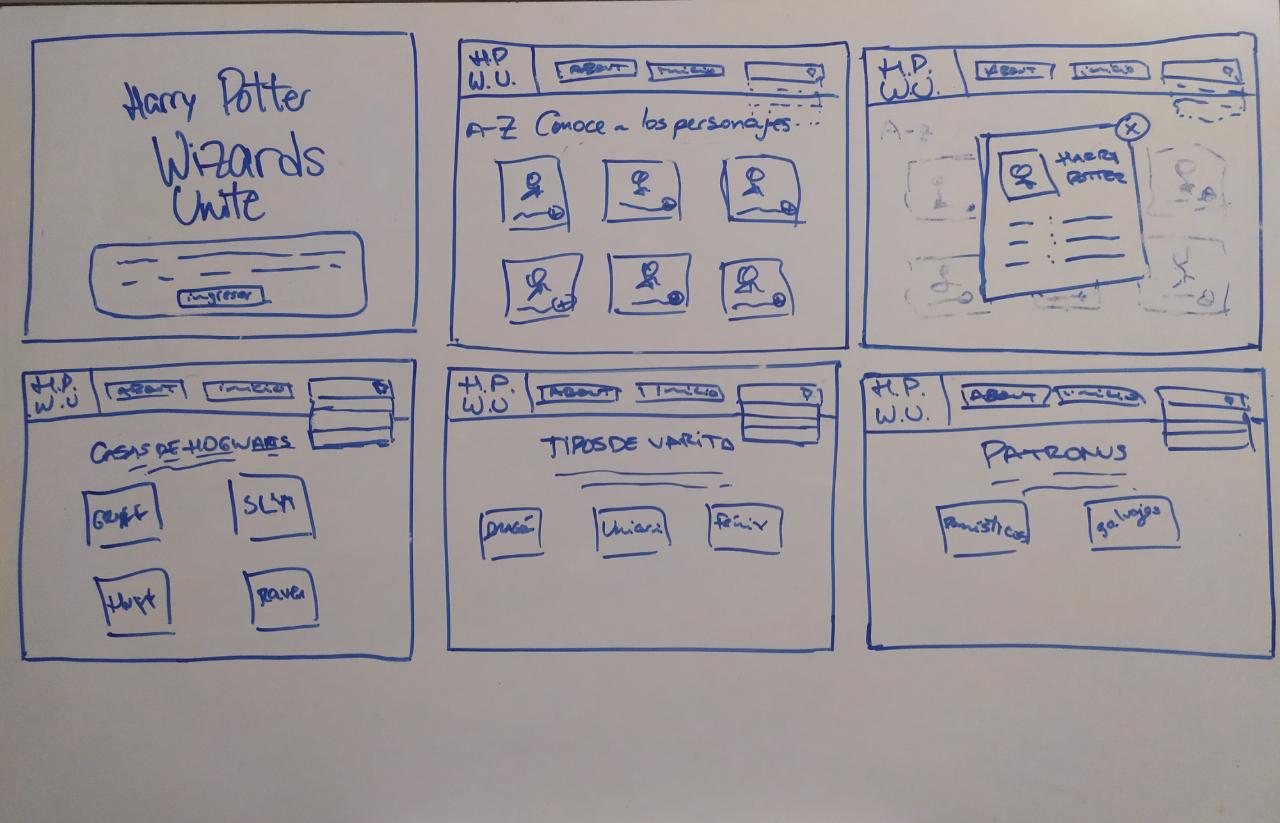 Harry Potter
Wizards
Unite
ingresar
H.P.
W.U.
ABOUT
inicio
A-Z Conoce a los personajes
H.P.
W.U.
ABOUT
inicio
A-Z
X
HARRY
POTTER
H.P.
W.U
ABOUT
inicio
CASAS DE HOGWARTS
GRYFF
SLYT
Huff
Raven
H.P.
W.U
ABOUT
inicio
TIPOS DE VARITA
Unicorn
fénix
H.P.
W.U.
ABOUT
inicio
PATRONUS